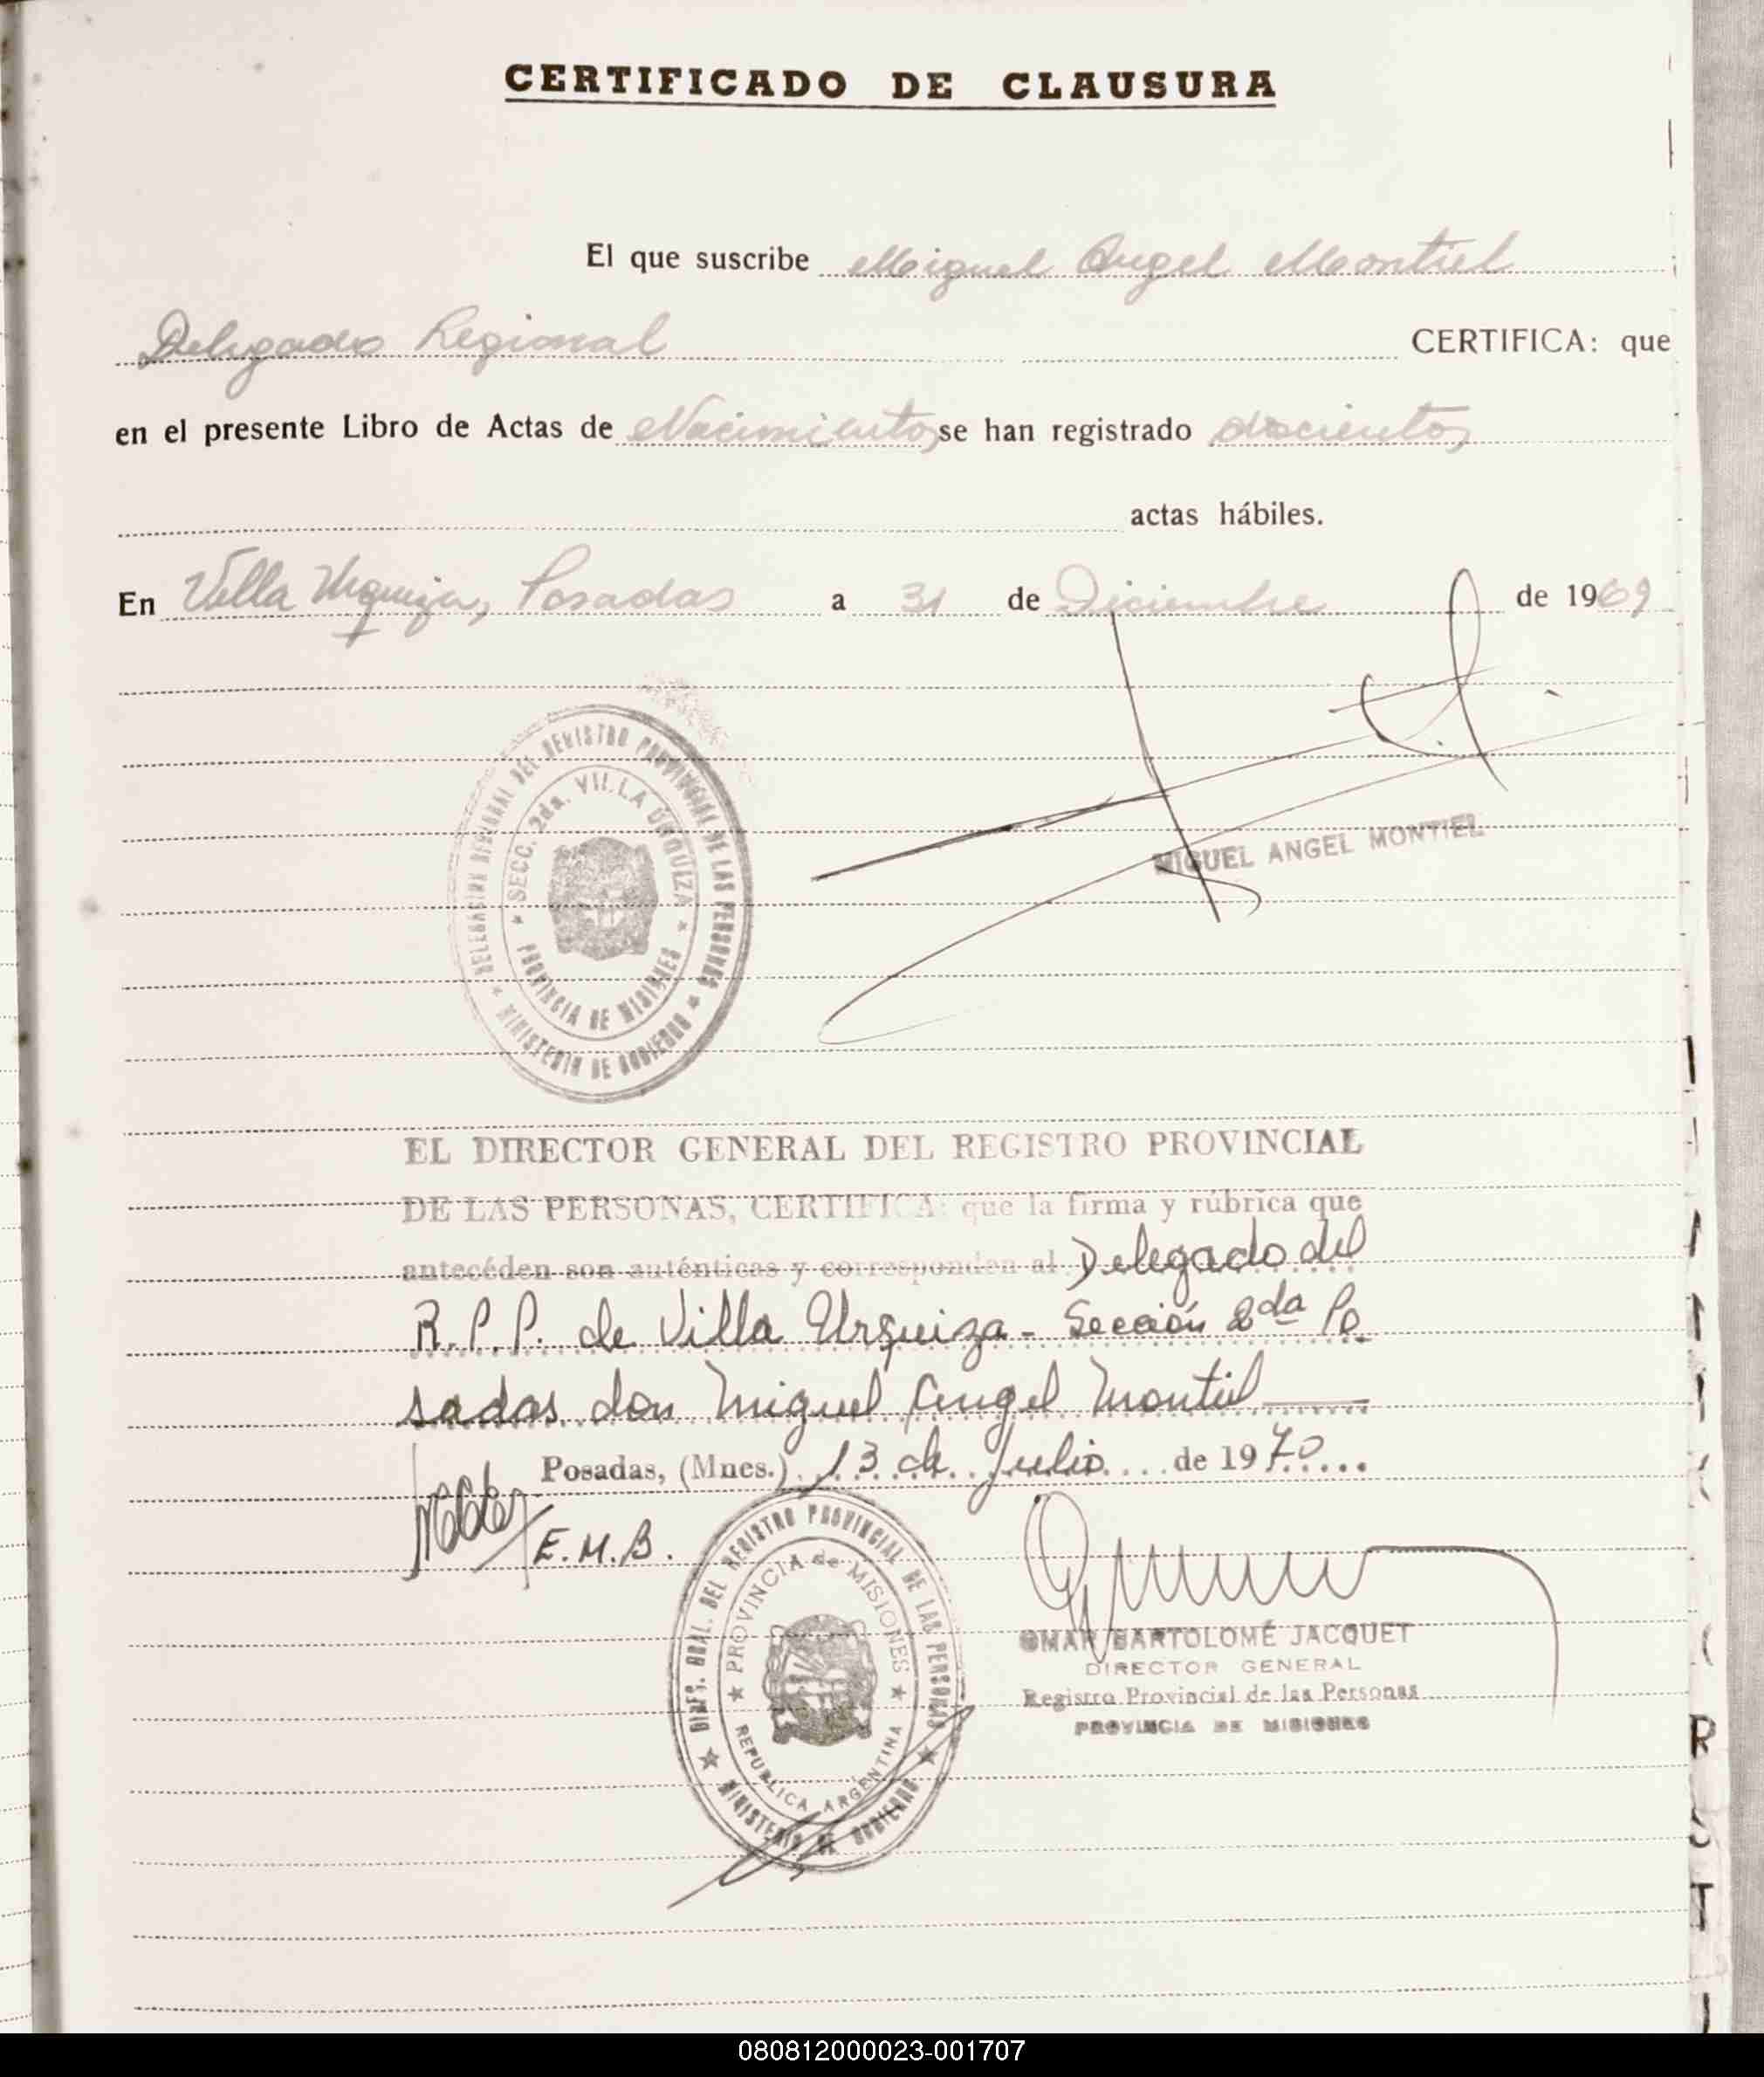 CERTIFICADO DE CLAUSURA
El que suscribe Miguel Angel Montiel
Delegado Regional CERTIFICA: que
en el presente Libro de Actas de Nacimientos se han registrado doscientos
actas hábiles.
En Villa Urquiza, Posadas a 31 de Diciembre de 1969
DELEGACION REGIONAL DEL REGISTRO PROVINCIAL DE LAS PERSONAS
SECC. 2da. VILLA URQUIZA
PROVINCIA DE MISIONES
MINISTERIO DE GOBIERNO
MIGUEL ANGEL MONTIEL
EL DIRECTOR GENERAL DEL REGISTRO PROVINCIAL
DE LAS PERSONAS, CERTIFICA: que la firma y rúbrica que
antecéden son auténticas y corresponden al Delegado del
R.P.P. de Villa Urquiza - Sección 2da Po
sadas don Miguel Angel Montiel
Posadas, (Mnes.) 13 de Julio de 1970
E.M.B.
DIREC. GRAL. DEL REGISTRO PROVINCIAL DE LAS PERSONAS
PROVINCIA de MISIONES
REPUBLICA ARGENTINA
MINISTERIO DE GOBIERNO
OMAR BARTOLOMÉ JACQUET
DIRECTOR GENERAL
Registro Provincial de las Personas
PROVINCIA DE MISIONES
R
S
T
080812000023-001707